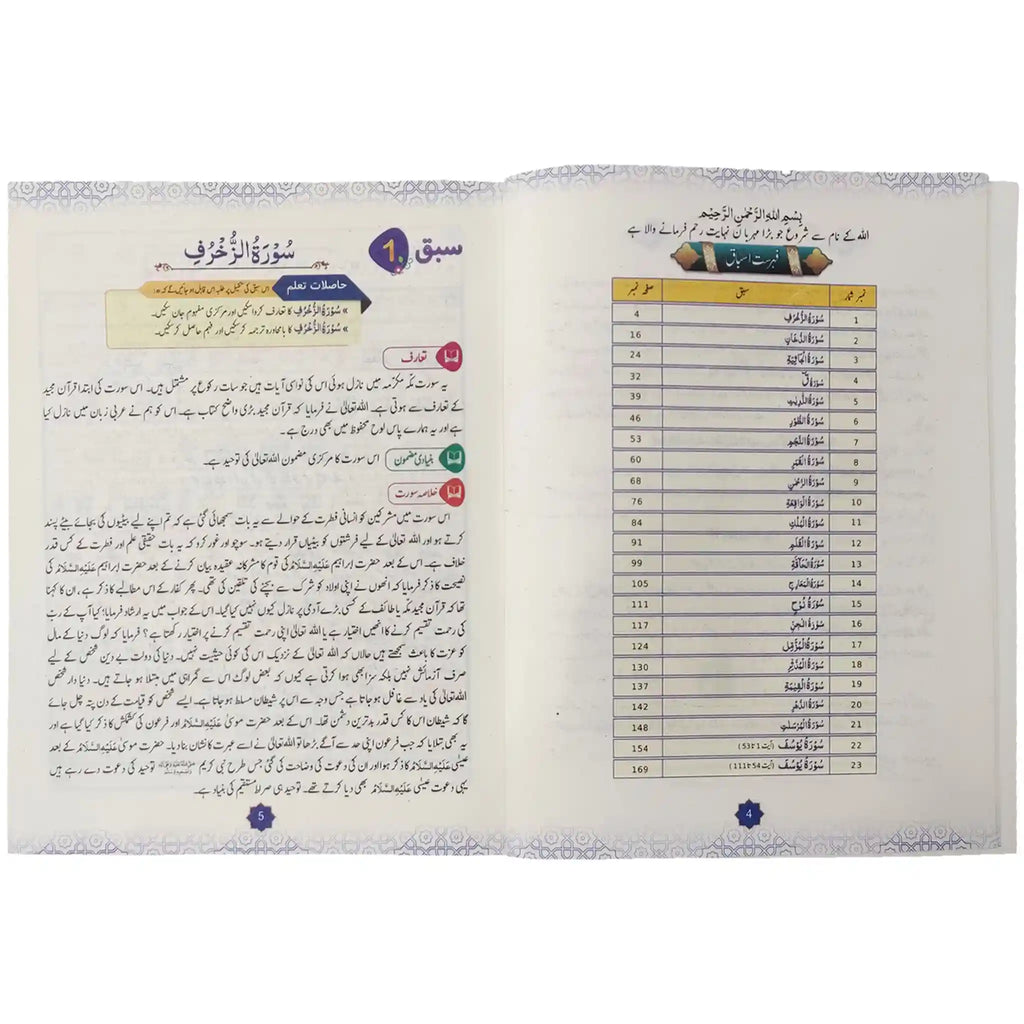 بِسْمِ اللهِ الرَّحْمٰنِ الرَّحِيْمِ
اللہ کے نام سے شروع جو بڑا مہربان نہایت رحم فرمانے والا ہے
فہرست اسباق
نمبر شمار سبق صفحہ نمبر
1 سُوْرَةُ الزُّخْرُفِ 4
2 سُوْرَةُ الدُّخَانِ 16
3 سُوْرَةُ الْجَاثِيَةِ 24
4 سُوْرَةُ قٓ 32
5 سُوْرَةُ الذّٰرِيٰتِ 39
6 سُوْرَةُ الطُّوْرِ 46
7 سُوْرَةُ النَّجْمِ 53
8 سُوْرَةُ الْقَمَرِ 60
9 سُوْرَةُ الرَّحْمٰنِ 68
10 سُوْرَةُ الْوَاقِعَةِ 76
11 سُوْرَةُ الْمُلْكِ 84
12 سُوْرَةُ الْقَلَمِ 91
13 سُوْرَةُ الْحَآقَّةِ 99
14 سُوْرَةُ الْمَعَارِجِ 105
15 سُوْرَةُ نُوْحٍ 111
16 سُوْرَةُ الْجِنِّ 117
17 سُوْرَةُ الْمُزَّمِّلِ 124
18 سُوْرَةُ الْمُدَّثِّرِ 130
19 سُوْرَةُ الْقِيٰمَةِ 137
20 سُوْرَةُ الدَّهْرِ 142
21 سُوْرَةُ الْمُرْسَلٰتِ 148
22 سُوْرَةُ يُوْسُفَ (آیت 1 تا 53) 154
23 سُوْرَةُ يُوْسُفَ (آیت 54 تا 111) 169
4
سبق 1
سُوْرَةُ الزُّخْرُفِ
حاصلات تعلم اس سبق کی تکمیل پر طلبہ اس قابل ہو جائیں گے کہ وہ:
» سُوْرَةُ الزُّخْرُفِ کا تعارف کروا سکیں اور مرکزی مفہوم جان سکیں۔
» سُوْرَةُ الزُّخْرُفِ کا بامحاورہ ترجمہ کر سکیں اور فہم حاصل کر سکیں۔
تعارف
یہ سورت مکّہ مکرّمہ میں نازل ہوئی اس کی نواسی آیات ہیں جو سات رکوع پر مشتمل ہیں۔ اس سورت کی ابتدا قرآن مجید
کے تعارف سے ہوتی ہے۔ اللہ تعالیٰ نے فرمایا کہ قرآن مجید بڑی واضح کتاب ہے۔ اس کو ہم نے عربی زبان میں نازل کیا
ہے اور یہ ہمارے پاس لوح محفوظ میں بھی درج ہے۔
بنیادی مضمون اس سورت کا مرکزی مضمون اللہ تعالیٰ کی توحید ہے۔
خلاصہ سورت
اس سورت میں مشرکین کو انسانی فطرت کے حوالے سے یہ بات سمجھائی گئی ہے کہ تم اپنے لیے بیٹیوں کی بجائے بیٹے پسند
کرتے ہو اور اللہ تعالیٰ کے لیے فرشتوں کو بیٹیاں قرار دیتے ہو۔ سوچو اور غور کرو کہ یہ بات حقیقی علم اور فطرت کے کس قدر
خلاف ہے۔ اس کے بعد حضرت ابراہیم عَلَيْهِ السَّلَامُ کی قوم کا مشرکانہ عقیدہ بیان کرنے کے بعد حضرت ابراہیم عَلَيْهِ السَّلَامُ کی
نصیحت کا ذکر فرمایا کہ انھوں نے اپنی اولاد کو شرک سے بچنے کی تلقین کی تھی۔ پھر کفار کے اس مطالبے کا ذکر ہے، ان کا کہنا
تھا کہ قرآن مجید مکّہ یا طائف کے کسی بڑے آدمی پر نازل کیوں نہیں کیا گیا۔ اس کے جواب میں یہ ارشاد فرمایا: کیا آپ کے ربّ
کی رحمت تقسیم کرنے کا انھیں اختیار ہے یا اللہ تعالیٰ اپنی رحمت تقسیم کرنے پر اختیار رکھتا ہے؟ فرمایا کہ لوگ دنیا کے مال
کو عزت کا باعث سمجھتے ہیں حالاں کہ اللہ تعالیٰ کے نزدیک اس کی کوئی حیثیت نہیں۔ دنیا کی دولت بے دین شخص کے لیے
صرف آزمائش نہیں بلکہ سزا بھی ہوا کرتی ہے کیوں کہ بعض لوگ اس سے گمراہی میں مبتلا ہو جاتے ہیں۔ دنیا دار شخص
اللہ تعالیٰ کی یاد سے غافل ہو جاتا ہے جس وجہ سے اس پر شیطان مسلط ہو جاتا ہے۔ ایسے شخص کو قیامت کے دن پتہ چل جائے
گا کہ شیطان اس کا کس قدر بدترین دشمن تھا۔ اس کے بعد حضرت موسیٰ عَلَيْهِ السَّلَامُ اور فرعون کی کشمکش کا ذکر کیا گیا ہے اور
یہ بھی بتلایا کہ جب فرعون اپنی حد سے آگے بڑھا تو اللہ تعالیٰ نے اسے عبرت کا نشان بنا دیا۔ حضرت موسیٰ عَلَيْهِ السَّلَامُ کے بعد
عیسیٰ عَلَيْهِ السَّلَامُ کا ذکر ہوا اور ان کی دعوت کی وضاحت کی گئی جس طرح نبی کریم ﷺ توحید کی دعوت دے رہے ہیں
یہی دعوت عیسیٰ عَلَيْهِ السَّلَامُ بھی دیا کرتے تھے۔ توحید ہی صراط مستقیم کی بنیاد ہے۔
5